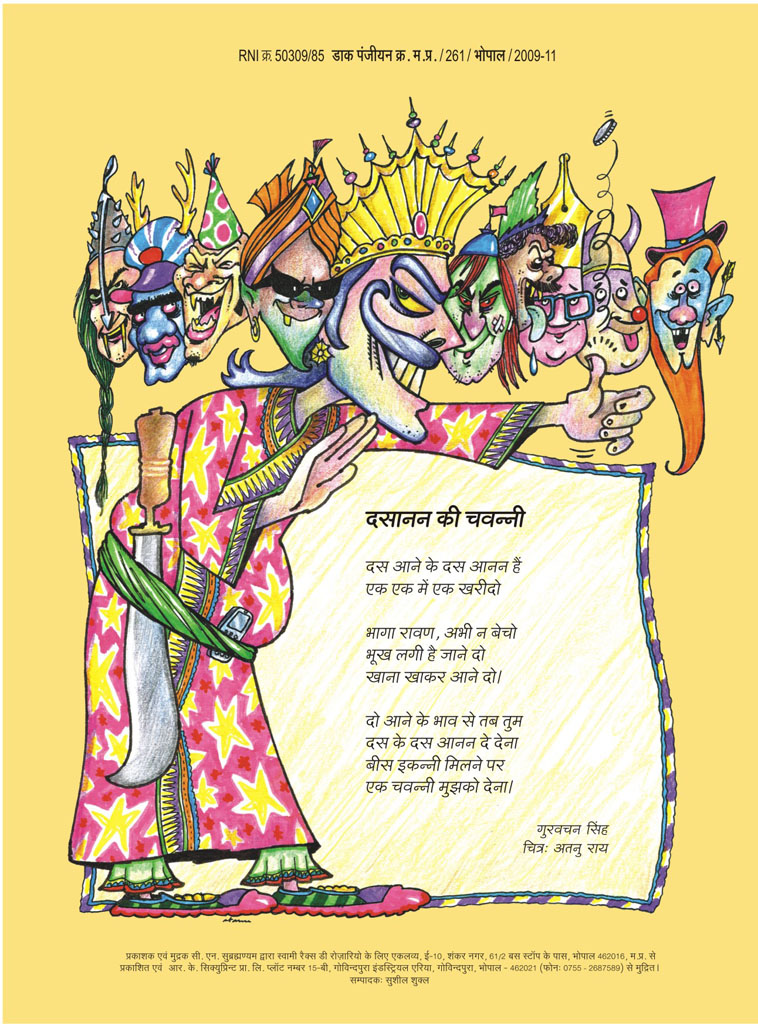 RNI क्र. 50309/85 डाक पंजीयन क्र. म.प्र. / 261 / भोपाल / 2009-11
दसानन की चवन्नी
दस आने के दस आनन हैं
एक एक में एक खरीदो
भागा रावण, अभी न बेचो
भूख लगी है जाने दो
खाना खाकर आने दो।
दो आने के भाव से तब तुम
दस के दस आनन दे देना
बीस इकन्नी मिलने पर
एक चवन्नी मुझको देना।
गुरवचन सिंह
चित्र: अतनु राय
प्रकाशक एवं मुद्रक सी. एन. सुब्रह्मण्यम द्वारा स्वामी रैक्स डी रोज़ारियो के लिए एकलव्य, ई-10, शंकर नगर, 61/2 बस स्टॉप के पास, भोपाल 462016, म.प्र. से
प्रकाशित एवं आर. के. सिक्युप्रिन्ट प्रा. लि. प्लॉट नम्बर 15-बी, गोविन्दपुरा इंडस्ट्रियल एरिया, गोविन्दपुरा, भोपाल - 462021 (फोन: 0755 - 2687589) से मुद्रित।
सम्पादक: सुशील शुक्ल